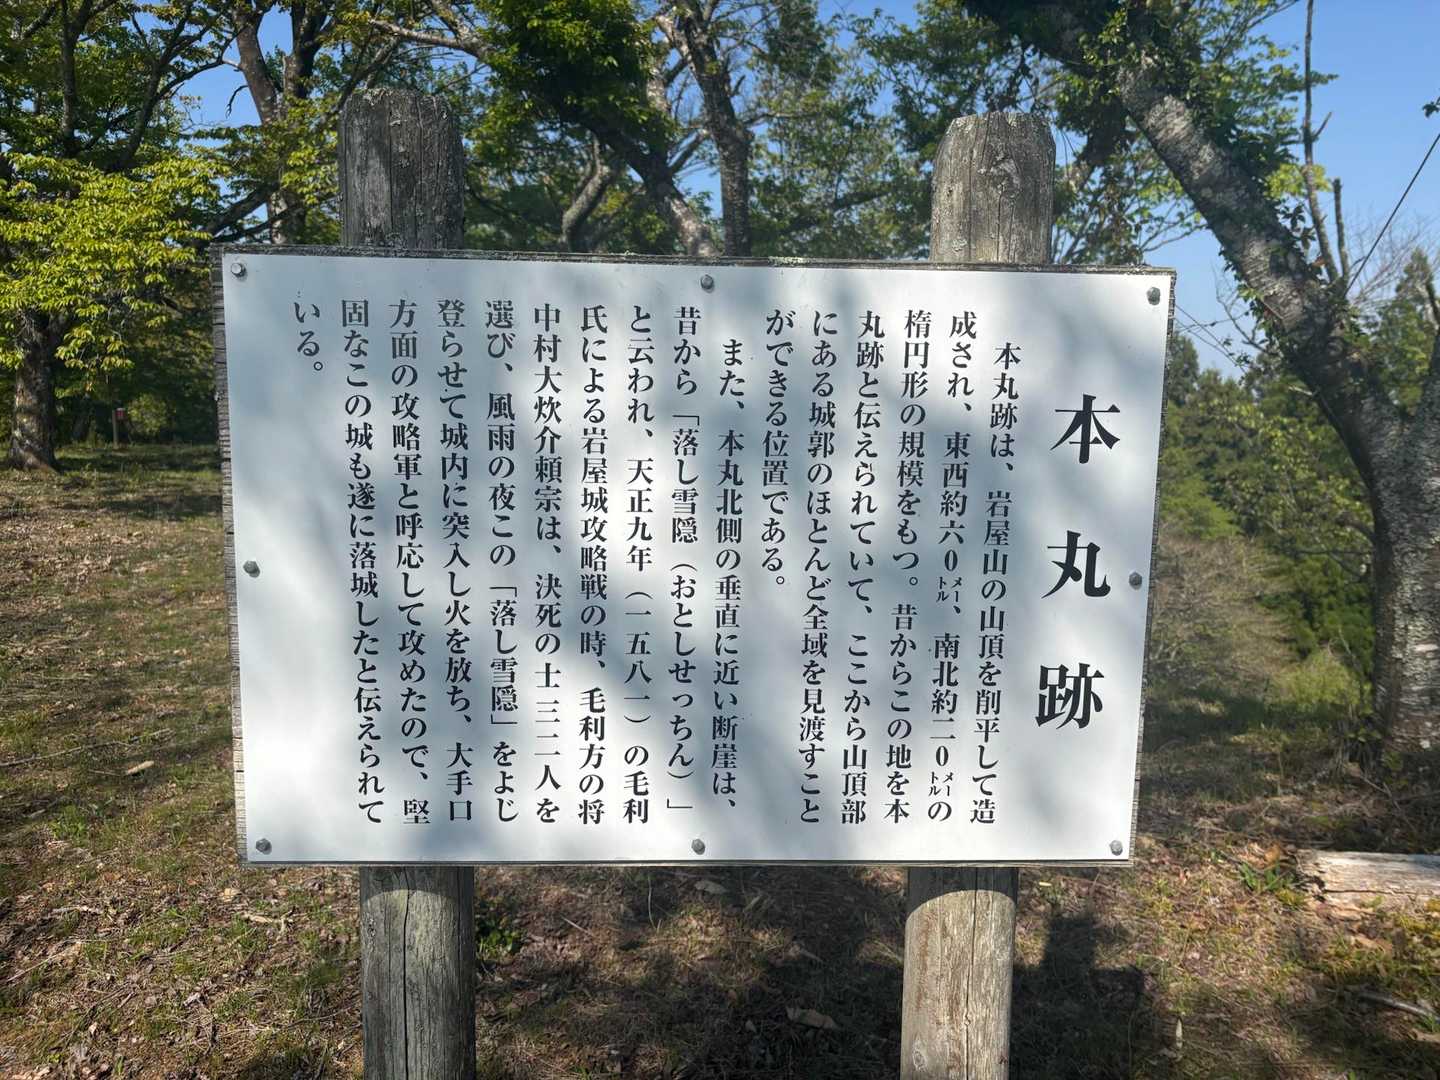 本丸跡
本丸跡は、岩屋山の山頂を削平して造
成され、東西約六0メートル、南北約二0メートルの
楕円形の規模をもつ。昔からこの地を本
丸跡と伝えられていて、ここから山頂部
にある城郭のほとんど全域を見渡すこと
ができる位置である。
また、本丸北側の垂直に近い断崖は、
昔から「落し雪隠（おとしせっちん）」
と云われ、天正九年（一五八一）の毛利
氏による岩屋城攻略戦の時、毛利方の将
中村大炊介頼宗は、決死の士三二人を
選び、風雨の夜この「落し雪隠」をよじ
登らせて城内に突入し火を放ち、大手口
方面の攻略軍と呼応して攻めたので、堅
固なこの城も遂に落城したと伝えられて
いる。